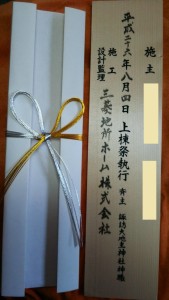 施主
平成二十六年八月四日 上棟祭執行 斉主 諏訪大地主神社神職
設計監理
施工 三菱地所ホーム株式会社